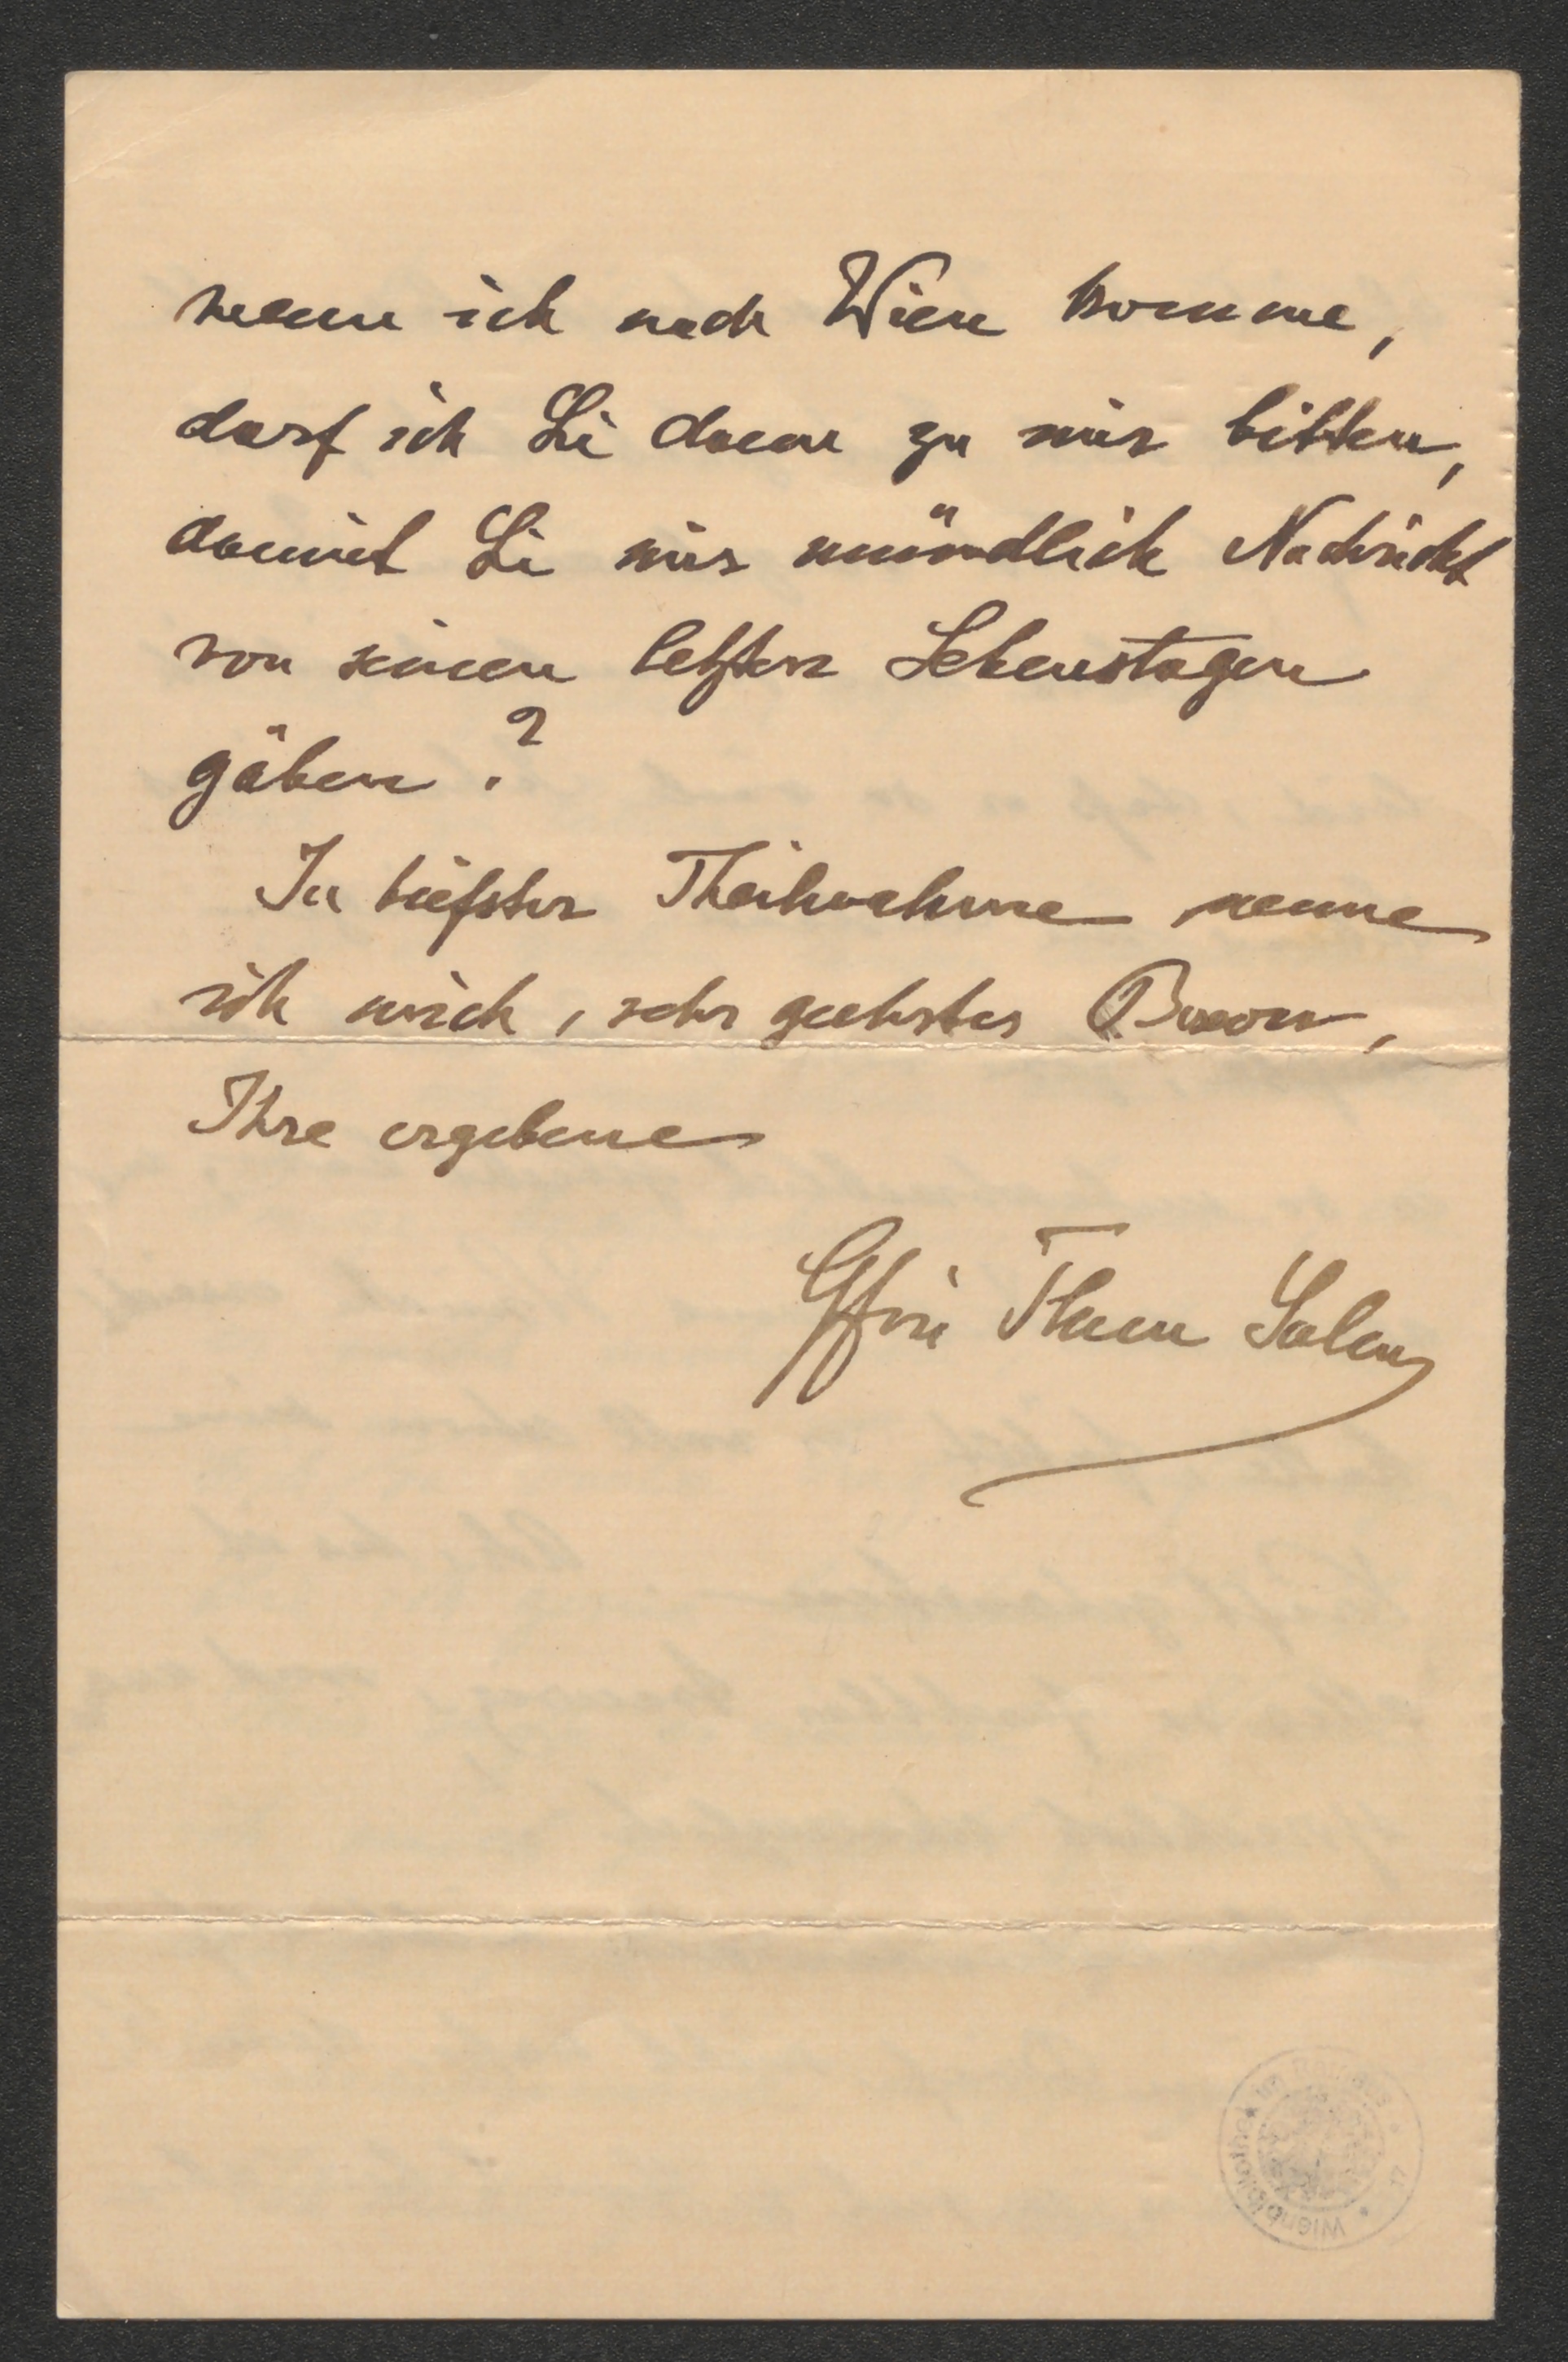 wenn ich nach Wien komme,
darf ich Sie dann zu mir bitten,
damit Sie mir mündlich Nachricht
von seinen letzten Lebenstagen
gäben?
In tiefster Theilnahme nenne
ich mich, sehr geehrter Baron,
Ihre ergebene
Gfin Thun Salm
Wienbibliothek im Rathaus